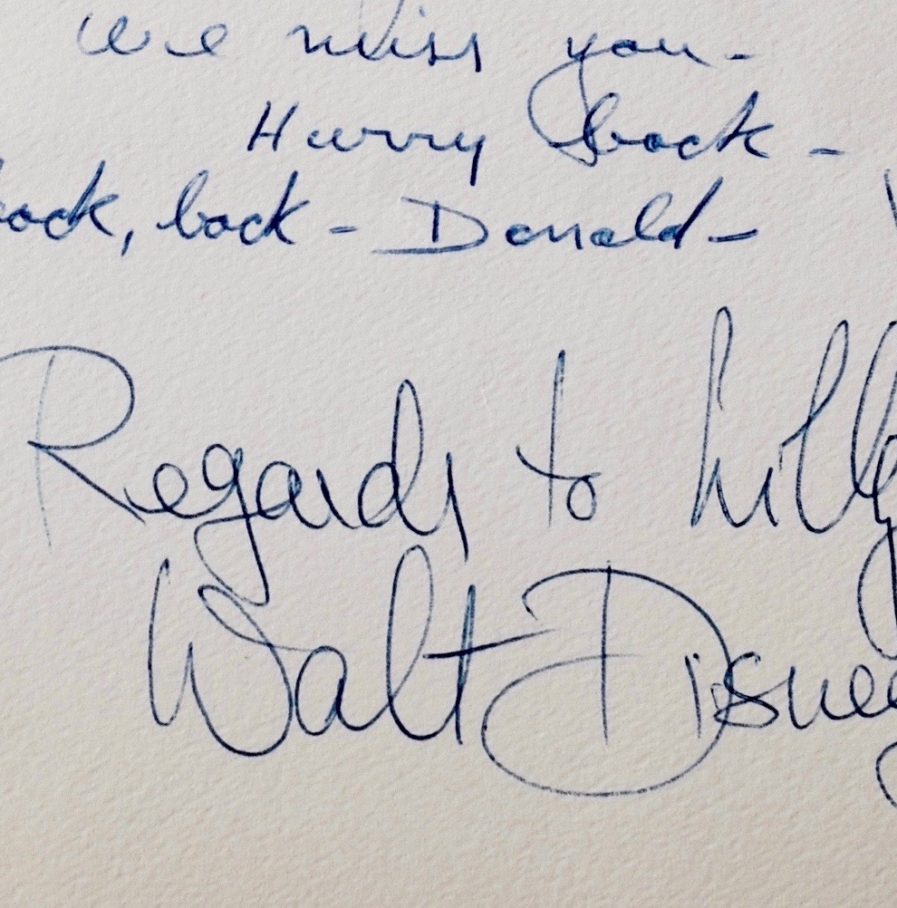 We miss you-
Hurry back -
back, back - Donald -
Regards to Lilly
Walt Disney